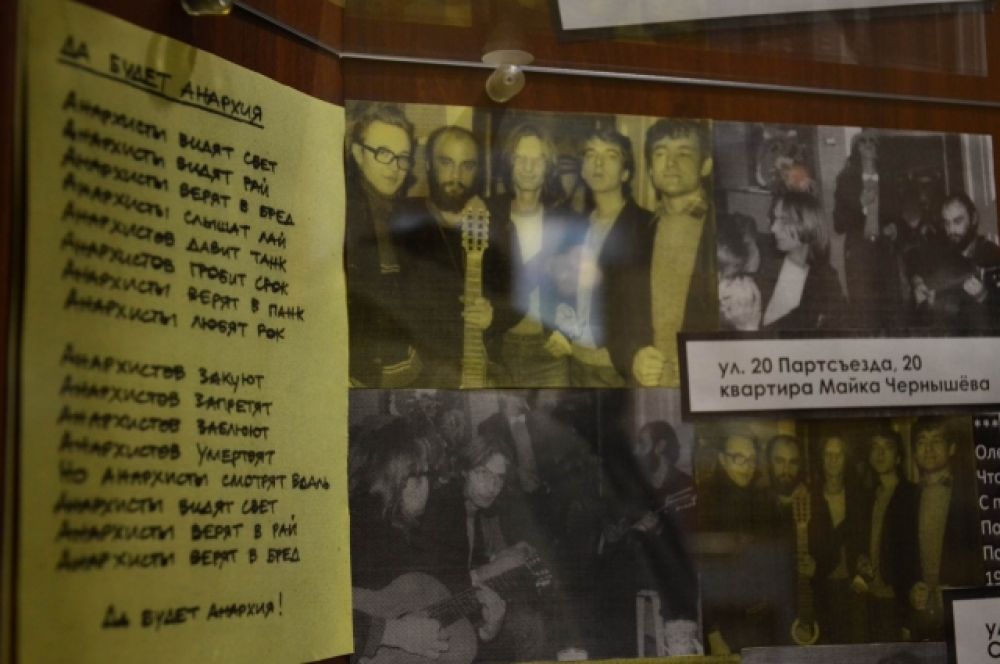 ДА БУДЕТ АНАРХИЯ
АНАРХИСТЫ ВИДЯТ СВЕТ
АНАРХИСТЫ ВИДЯТ РАЙ
АНАРХИСТЫ ВЕРЯТ В БРЕД
АНАРХИСТЫ СЛЫШАТ ЛАЙ
АНАРХИСТОВ ДАВИТ ТАНК
АНАРХИСТОВ ГРОБИТ СРОК
АНАРХИСТЫ ВЕРЯТ В ПАНК
АНАРХИСТЫ ЛЮБЯТ РОК
АНАРХИСТОВ ЗАКУЮТ
АНАРХИСТОВ ЗАПРЕТЯТ
АНАРХИСТОВ ЗАБЛЮЮТ
АНАРХИСТОВ УМЕРТВЯТ
НО АНАРХИСТЫ СМОТРЯТ ВДАЛЬ
АНАРХИСТЫ ВИДЯТ СВЕТ
АНАРХИСТЫ ВЕРЯТ В РАЙ
АНАРХИСТЫ ВЕРЯТ В БРЕД
ДА БУДЕТ АНАРХИЯ!
ул. 20 Партсъезда, 20
квартира Майка Чернышёва
***
Оле
Что
С п
По
По
19